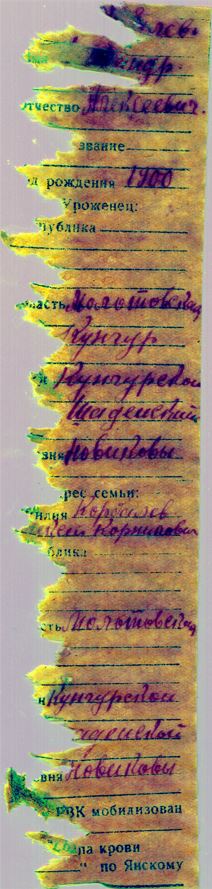 отчество Алексеевич.
звание
рождения 1900
Уроженец:
публика
асть Молотовская
Кунгур
Кунгурской
Шадейский
вня Новиковы
рес семьи:
илия
Корнилович
блика
сть Молотовская
н Кунгурской
адейской
вня Новиковы
РВК мобилизован
па крови
" по Янскому